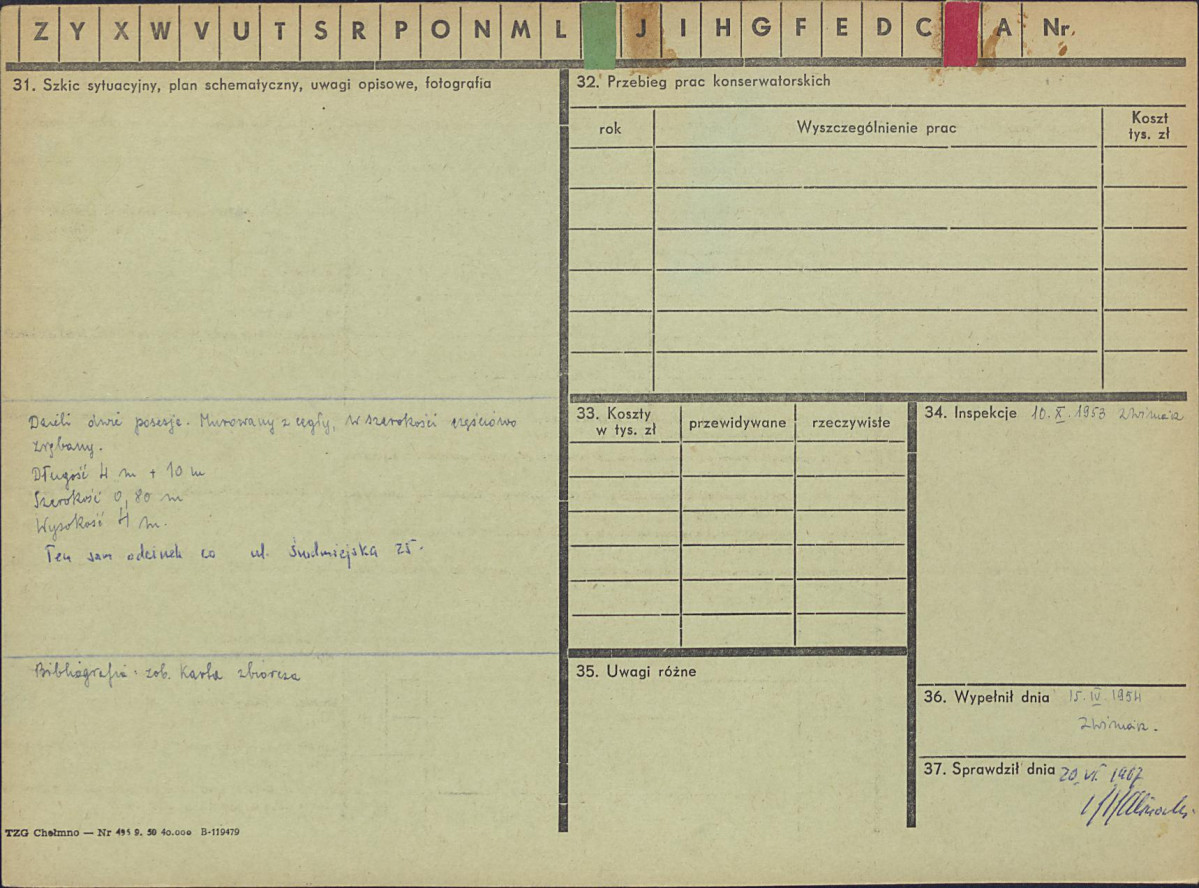 Z Y X W V U T S R P O N M L J I H G F E D C A Nr.
31. Szkic sytuacyjny, plan schematyczny, uwagi opisowe, fotografia
Dzieli dwie posesje. Murowany z cegły, w szerokości częściowo
zrąbany.
Długość 4 m + 10 m
Szerokość 0,80 m
Wysokość 4 m.
Ten sam odcinek co ul. Śródmiejska 25.
Bibliografia: zob. Karta zbiorcza
TZG Chełmno — Nr 495 9. 50 40.000 B-119479
32. Przebieg prac konserwatorskich
rok
Wyszczególnienie prac
Koszt
tys. zł
33. Koszty
w tys. zł
przewidywane
rzeczywiste
34. Inspekcje 10. X. 1953
35. Uwagi różne
36. Wypełnił dnia 15. IV. 1954
37. Sprawdził dnia 20. VI. 1967